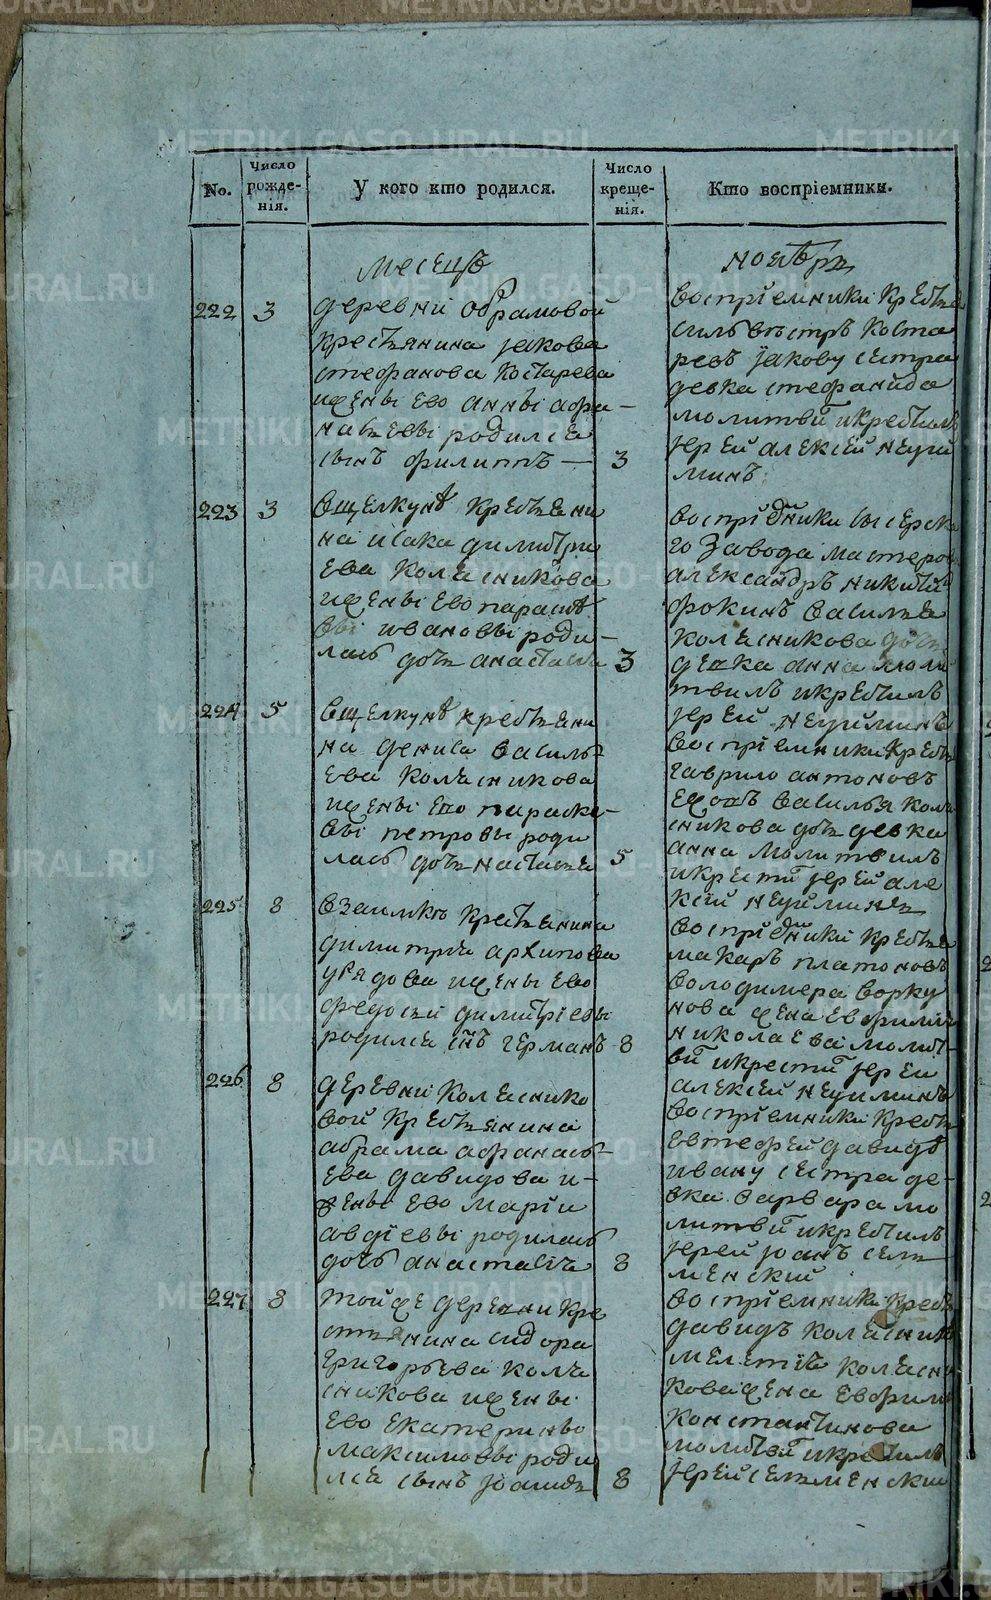 No.
Число рожде-
нія.
У кого кто родился.
Число креще-
нія.
Кто воспріемники.
месецъ
ноября
222 3
деревни абрамовой
крестьянина якова
стефанова костарева
ижены ево анны афа-
натьевы родился
сынъ филиппъ — 3
воспріемники
силъвестръ коста
ревъ якову сестра
девка стефанида
молитви икрестилъ
іерей алексей неуй
минъ
223 3
вщелкунѣ крестьяни
на исака димитри
ева колясникова
ижены ево параск
вы ивановы роди-
лась дочь анастасия 3
воспріемники сысерска
го завода мастеров
александръ никитин
фокинъ василья
колясникова дочь
девка анна моли
твилъ икрестилъ
іерей неуйминъ
224 5
вщелкунѣ крестьяни
на дениса василь-
ева колясникова
ижены ево параске-
вы петровы роди
лась дочь настасья 5
воспріемники крест
гаврило антоновъ
ежовъ василья коля
сникова дочь девка
анна молитвилъ
икрести іерей але
ксій неуйминъ
225 8
взаимкѣ крестьянина
димитрия архипова
урядова ижены ево
федосьи димитріевы
родился сынъ германъ 8
воспріемники
макаръ платоновъ
володимера ворку
нова жена евфимия
николаева молит-
ви икрести іерей
алексей неуйминъ
226 8
деревни колеснико
вой крестьянина
абрама афанась-
ева давидова и-
жены ево маріи
авдіевы родилась
дочь анастасія 8
воспріемники крест
евтефей давидо
ивану сестра де-
вка варвара мо
литви икрестилъ
іерей іоанъ селе
менский
227 8
тойже деревни кре
стьянина сидора
григорьева коля
сникова ижены
ево екатерины
максимовы роди
лся сынъ іоанъ 8
воспріемники крест
давидъ колясник
мелетия колясни
кова жена евфими
константинова
молитви икрестилъ
іерей селеменский